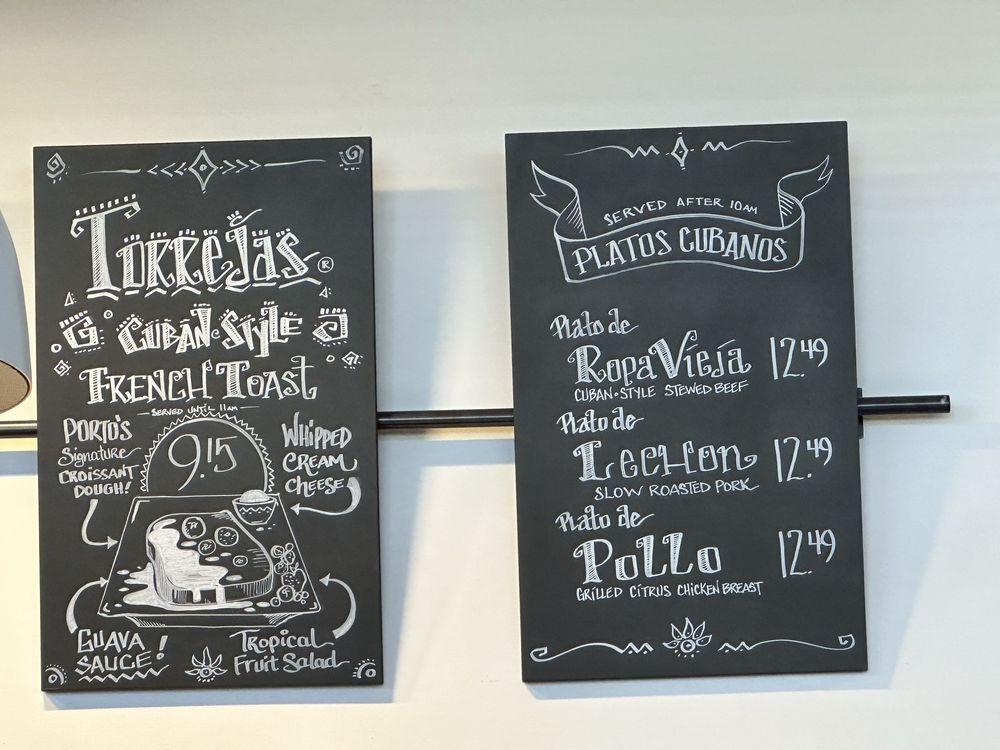 Torrejas ®
Cuban Style
French Toast
SERVED UNTIL 11AM
9.15
PORTO'S
Signature
CROISSANT
DOUGH!
WHIPPED
CREAM
CHEESE
GUAVA
SAUCE!
Tropical
Fruit Salad
SERVED AFTER 10AM
PLATOS CUBANOS
Plato de
Ropa Vieja 12.49
CUBAN-STYLE STEWED BEEF
Plato de
Lechon 12.49
SLOW ROASTED PORK
Plato de
Pollo 12.49
GRILLED CITRUS CHICKEN BREAST